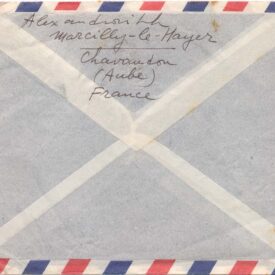 Alexandroitch
Marcilly-le-Hayer
Chavaudon
(Aube)
France